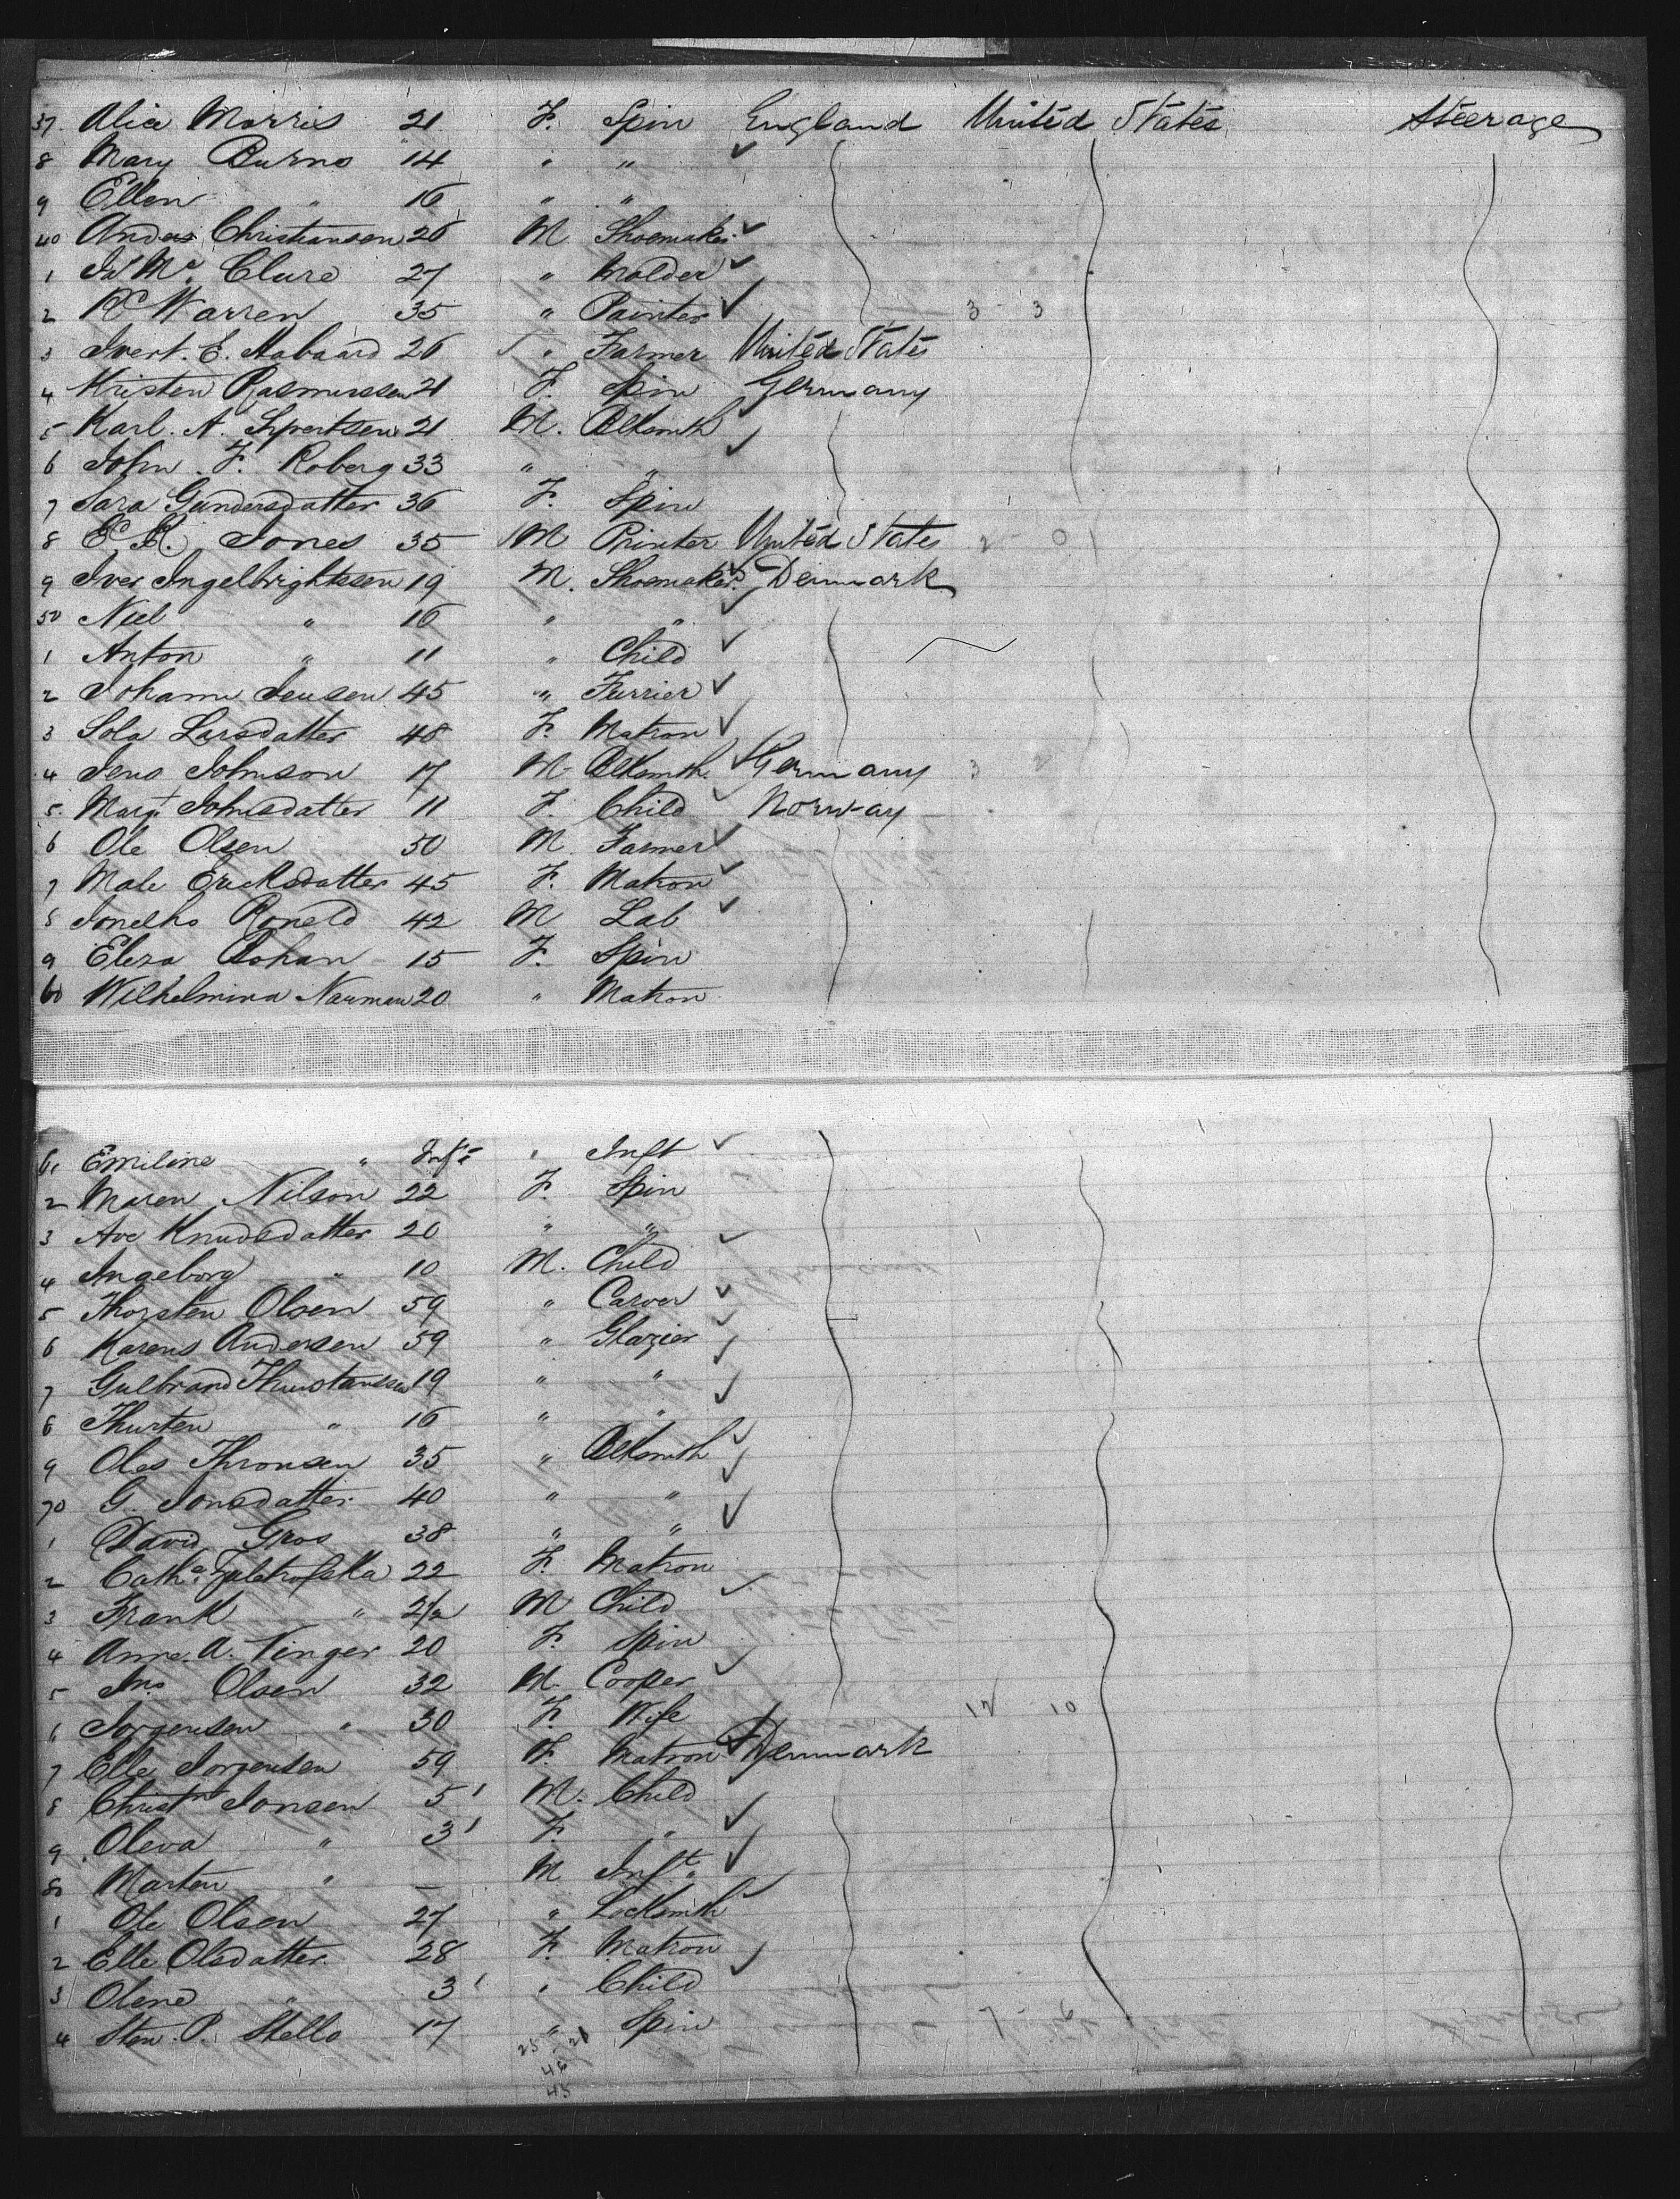 37. Alice Morris 21 F. Spin England United States Steerage
8 Mary Burns 14 " "
9 Ellen " 16 " "
40 Anders Christiansen 26 M Shoemaker
1 Mc Clure 27 " Molder
2 Warren 35 " Painter 3 - 3
3 Ivert. E. Aabaard 26 " Farmer United States
4 Kristen Rasmussen 21 F. Spin Germany
5 Karl. A. 21 M. Blksmth
6 John. F. Roberg 33 " "
7 Sara Gundersdatter 36 F. Spin
8 Jones 35 M Printer United States 2 - 0
9 Iver Ingelbrightsen 19 M. Shoemaker Denmark
50 Niel " 16 " "
1 Anton " 11 " Child
2 Johann Jensen 45 " Furrier
3 Sola Larsdatter 48 F. Matron
4 Jens Johnson 17 M. Blksmth. Germany 3
5. Margt Johnsdatter 11 F. Child Norway
6 Ole Olsen 50 M. Farmer
7 Male Ericksdatter 45 F. Matron
8 Roneld 42 M Lab
9 Eleza Bohan 15 F. Spin
60 Wilhelmina Nauman 20 " Matron
61 Emiline " Inft " Inft
2 Maren Nilson 22 F. Spin
3 Ave Knudsdatter 20 " "
4 Ingeborg " 10 M. Child
5 Thorsten Olsen 59 " Carver
6 Karens Andersen 59 " Glazier
7 Gulbrand 19 " "
8 Thurten " 16 " "
9 Oles Thronsen 35 " Blksmth
70 G. Jonsdatter 40 " "
1 David Gros 38 " "
2 Catha. 22 F. Matron
3 Frank " 2 M Child
4 Anne. A. Vinger 20 F. Spin
5 Jno Olsen 32 M. Cooper
6 Jorgensen " 30 F. Wife 12 10
7 Elle Jorgensen 59 F. Matron Denmark
8 Christn Jonsen 5 M. Child
9 Oleva " 3 F. "
80 Marten " — M Inft.
1 Ole Olsen 27 " Locksmith
2 Elle Olsdatter. 28 F. Matron
3 Olene " 3 " Child
4 Sten. P. Stello 17 " Spin 7 - 6
25 - 21
46
45